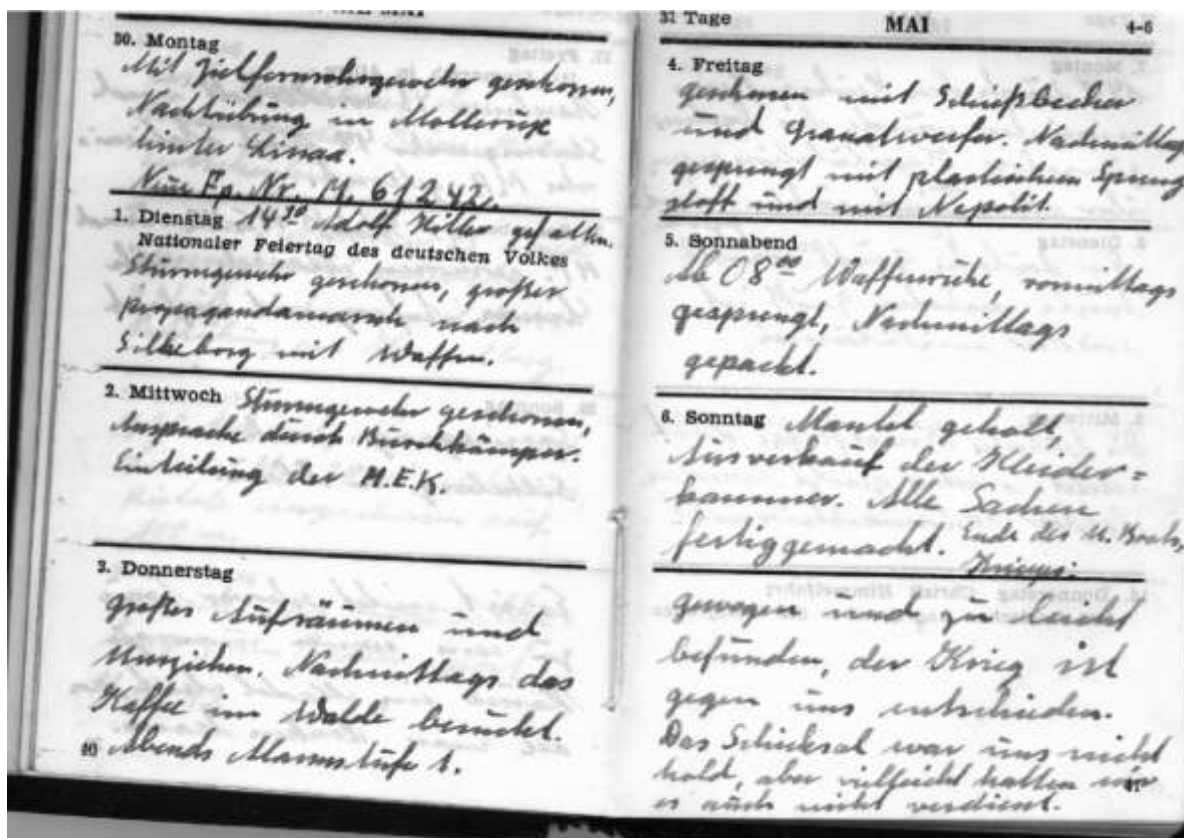 MAI
30. Montag
Mit Zielfernrohrgewehr geschossen,
Nachtübung in Mollerup
hinter Linaa.
Neue Fp. Nr. M. 61242.
1. Dienstag 14³⁰ Adolf Hitler gefallen.
Nationaler Feiertag des deutschen Volkes
Sturmgewehr geschossen, großer
Propagandamarsch nach
Silkeborg mit Waffen.
2. Mittwoch Sturmgewehr geschossen,
Ansprache durch
Einteilung der M.E.K.
3. Donnerstag
großes Aufräumen und
Umziehen. Nachmittags das
Kaffee im Walde besucht.
40 Abends Alarmstufe 1.
31 Tage MAI 4-6
4. Freitag
geschossen mit Schießbecher
und Granatwerfer. Nachmittag
gesprengt mit plastischem Spreng
stoff und mit Nepolit.
5. Sonnabend
Ab 08⁰⁰ Waffenruhe, vormittags
gesprengt, Nachmittags
gepackt.
6. Sonntag Mantel geholt,
Ausverkauf der Kleider=
kammer. Alle Sachen
fertiggemacht. Ende des U. Boots,
Krieges.
gewogen und zu leicht
befunden, der Krieg ist
gegen uns entschieden.
Das Schicksal war uns nicht
hold, aber vielleicht hatten wir
es auch nicht verdient.
41